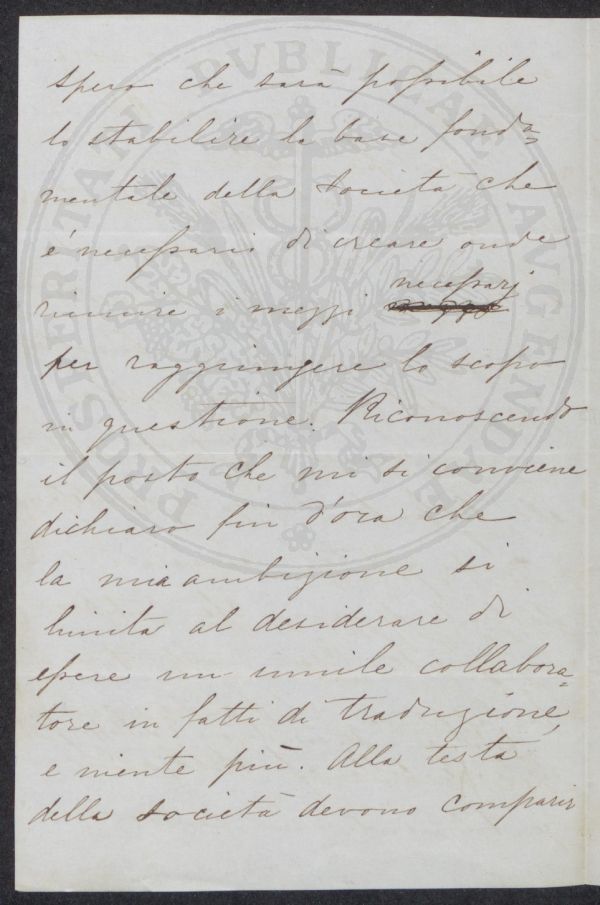 spero che sarà possibile
lo stabilire la base fonda=
mentale della Società che
è necessario di creare onde
riunire i mezzi necessarj
per raggiungere lo scopo
in questione. Riconoscendo
il posto che mi si conviene
dichiaro fin d'ora che
la mia ambizione si
limita al desiderare di
essere un umile collabora=
tore in fatti di traduzione,
e niente più. Alla testa
della Società devono comparir
PROSPERITATI PVBLICAE AVGENDAE